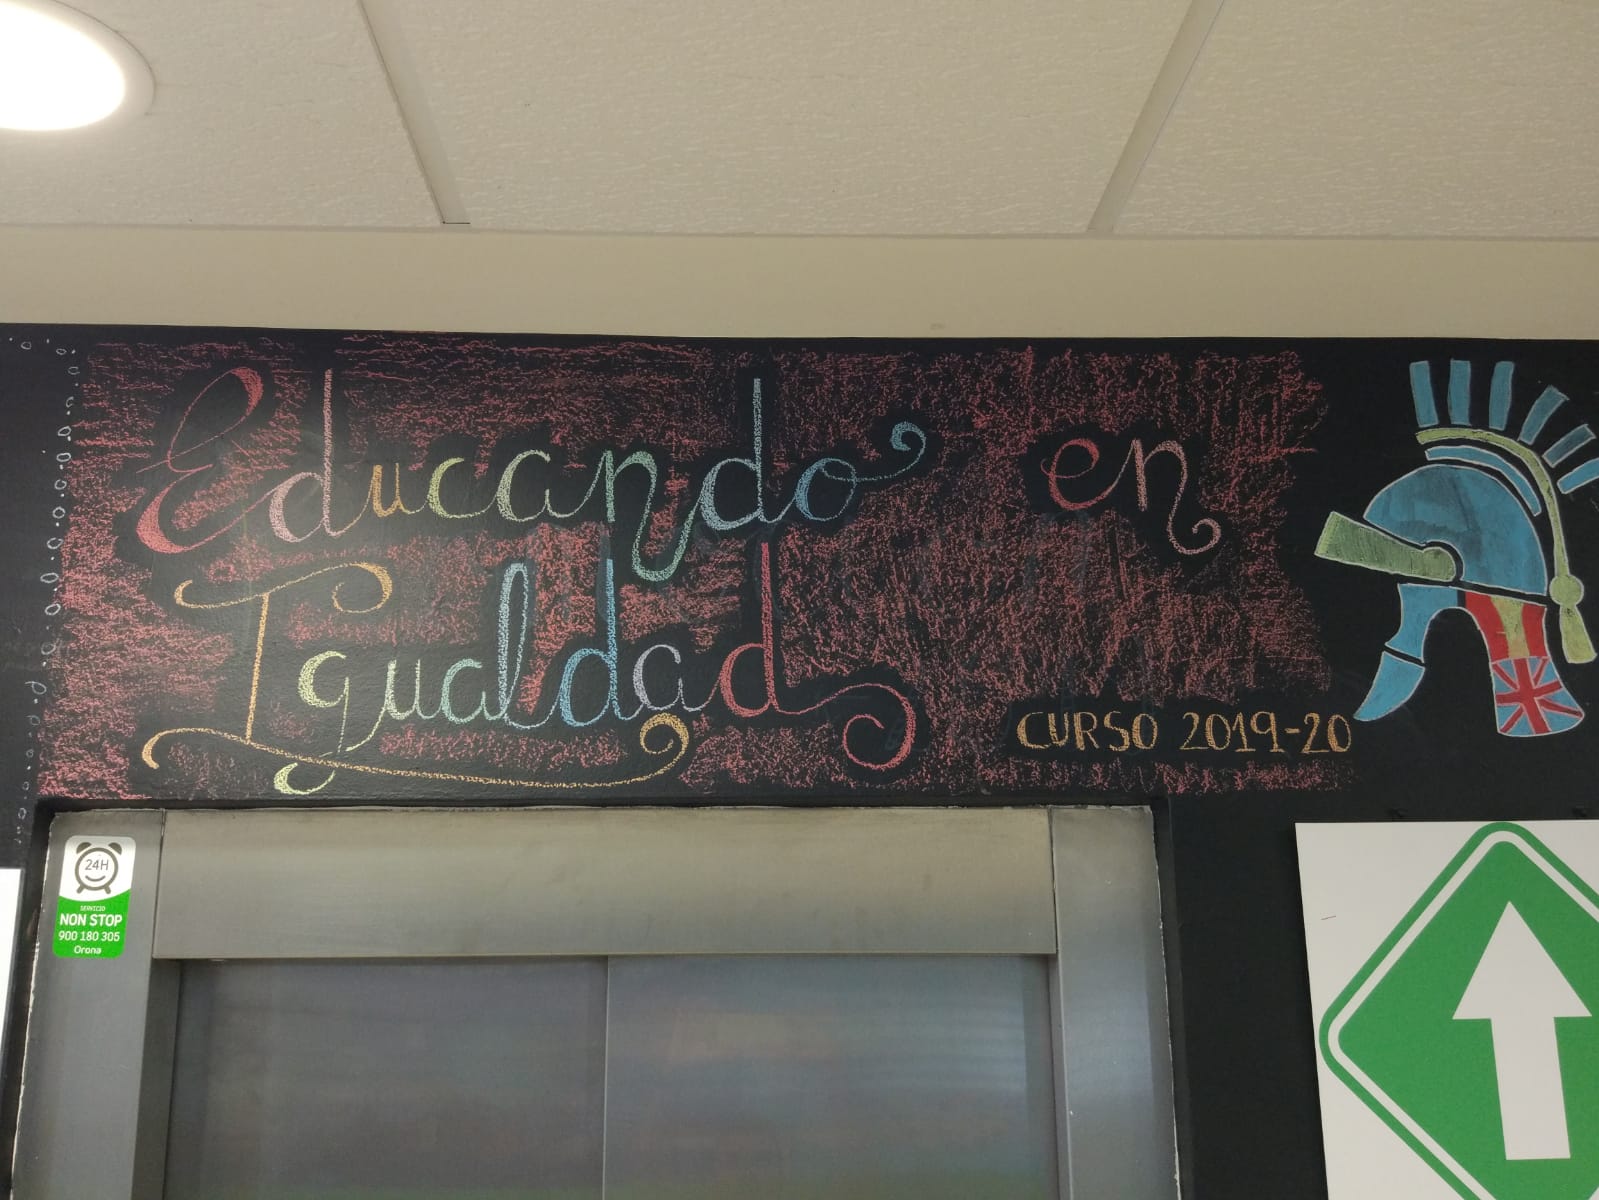 Educando en
Igualdad
CURSO 2019-20
24H
SERVICIO
NON STOP
900 180 305
Orona